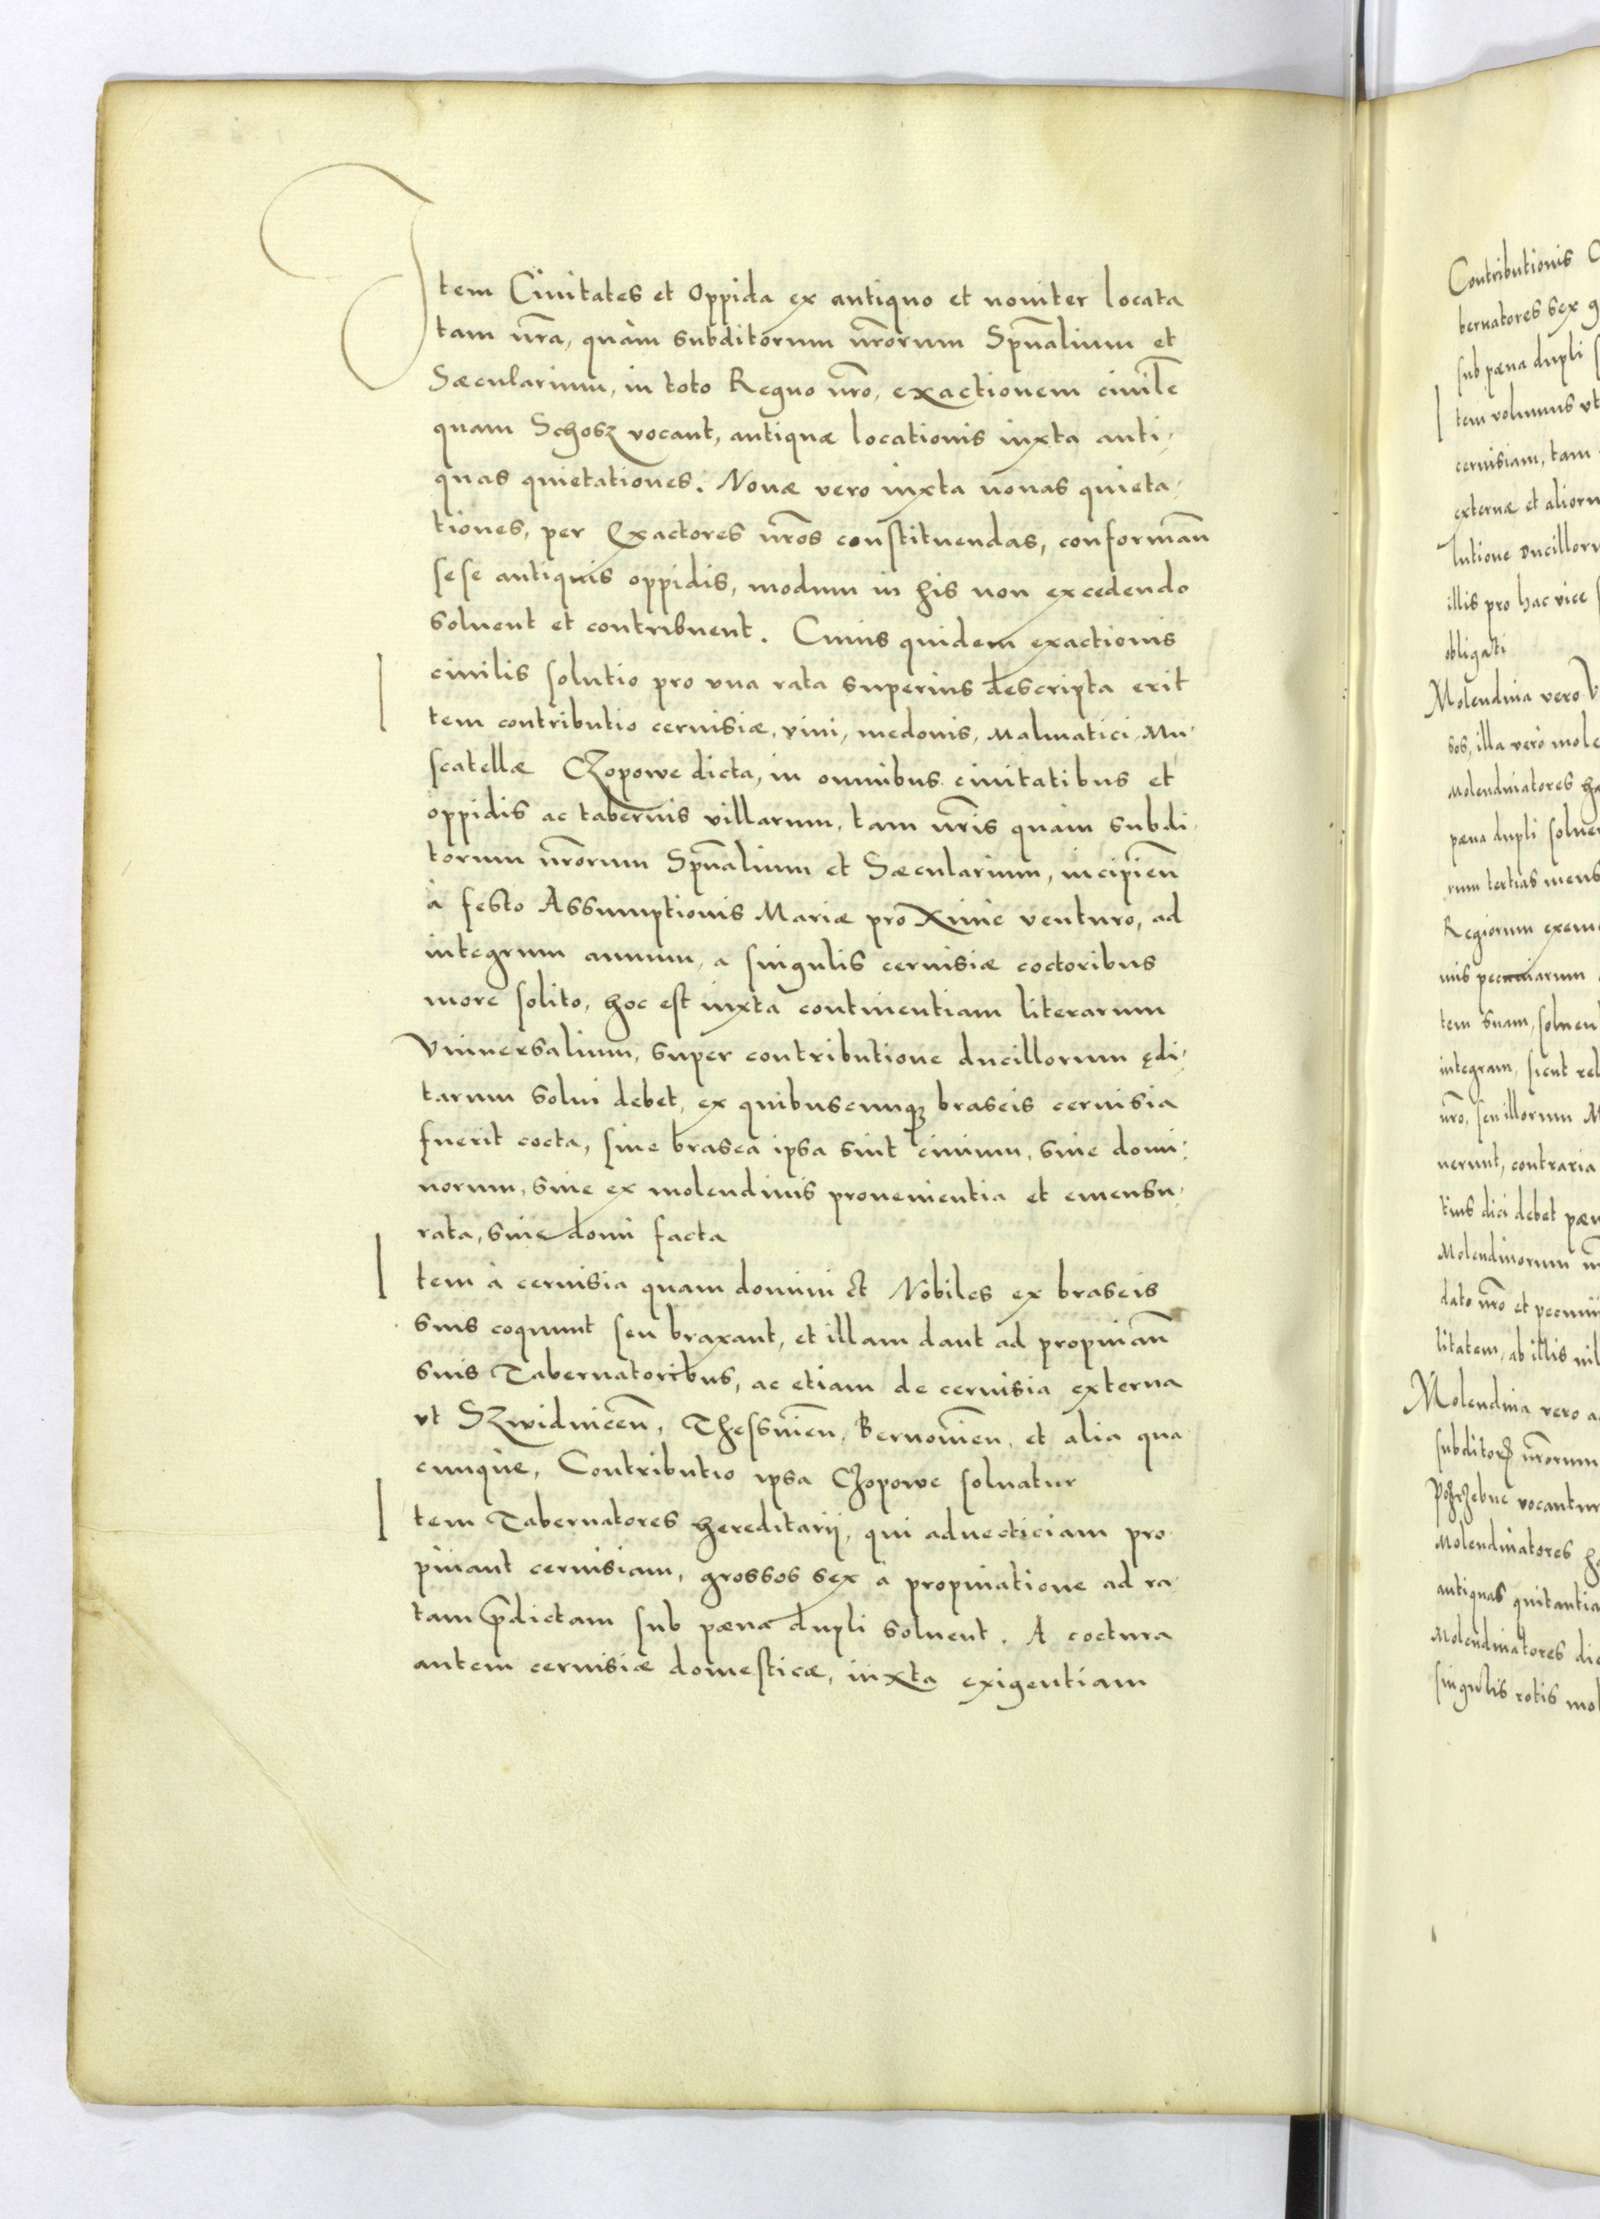 Item Ciuitates et Oppida ex antiquo et nouiter locata
tam nr̃a, quàm subditorum nr̃orum Spũalium et
Sæcularium, in toto Regno nr̃o, exactionem ciuilẽ
quam Schosz vocant, antiquæ locationis iuxta anti,
quas quietationes. Nouæ vero iuxta nouas quieta,
tiones, per Exactores nr̃os constituendas, conformañ
sese antiquis oppidis, modum in his non excedendo
soluent et contribuent. Cuius quidem exactionis
ciuilis solutio pro vna rata superius descripta erit
Item contributio ceruisiæ, vini, medonis, Malmatici, Mu,
scatellæ Czopowe dicta, in omnibus ciuitatibus et
oppidis ac tabernis villarum, tam nr̃is quàm subdi,
torum nr̃orum Spũalium et Sæcularium, incipieñ
à festo Assumptionis Mariæ proxime venturo, ad
integrum annum, a singulis ceruisiæ coctoribus
more solito, hoc est iuxta continentiam literarum
Vniuersalium, super contributione ducillorum ędi,
tarum solui debet, ex quibuscunqꝫ braseis ceruisia
fuerit cocta, siue brasea ipsa sint ciuium, siue domi,
norum, siue ex molendinis prouenientia et emensu,
rata, siue domi facta
Item à ceruisia quam domini et Nobiles ex braseis
suis coquunt seu braxant, et illam dant ad propinañ
suis Tabernatoribus, ac etiam de ceruisia externa
vt Szwidniceñ, Thessnieñ, Bernouieñ, et alia qua
cunque, Contributio ipsa Czopowe soluatur
Item Tabernatores hereditarij, qui aduecticiam pro
pinant ceruisiam, grossos sex à propinatione ad ra
tam p̃dictam sub pæna dupli soluent. A coctura
autem ceruisiæ domesticæ, iuxta exigentiam
Contributionis
bernatores sex
sub pæna dupli
Item volumus vt
ceruisiam, tam
externæ et alioru
lutione ducilloru
illis pro hac vice
obligati
Molendina vero
sos, illa verò mole
Molendinatores ha
pæna dupli soluen
rum tertias mens
Regiorum exem
nis pecuniarum
tem suam, soluen
integram, sicut rel
nr̃o, seu illorum M
uerunt, contraria
tius dici debet pæn
Molendinorum
dato nr̃o et pecunij
litatem, ab illis nil
Molendina vero a
subditoꝝ nr̃orum
Pozrzebne vocantur
Molendinatores h
antiquas quitantia
Molendinatores di
singulis rotis mol